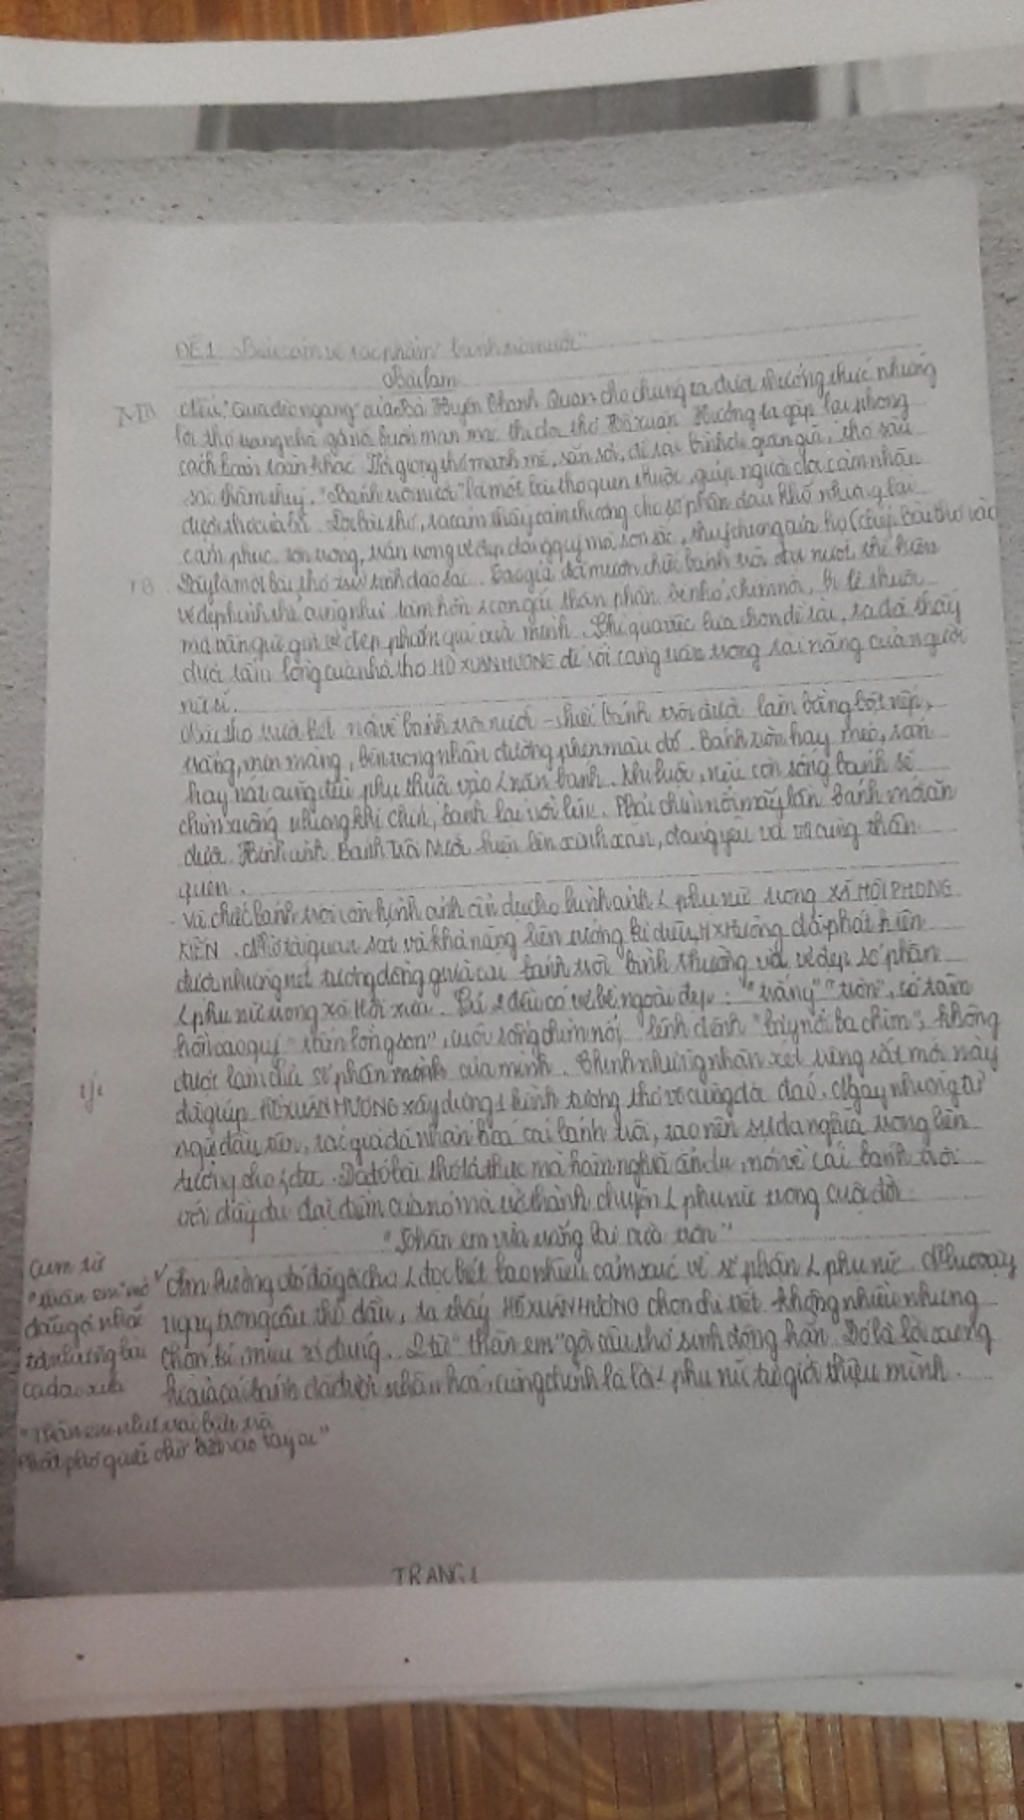 ĐỀ 1. Biểu cảm về tác phẩm "bánh trôi nước"
Bài làm
Nếu "Qua đèo ngang" của Bà Huyện Thanh Quan cho chúng ta được thưởng thức những
lời thơ trang nhã buồn man mác thì thơ Hồ Xuân Hương ta gặp lại phong
cách hoàn toàn khác giọng thơ mạnh mẽ, sắn sỏi, đề tài bình dị giản giị, thơ sâu
sắc thâm thuý. "Bánh trôi nước" là một bài thơ quen thuộc, giúp người đọc cảm nhận
được thơ của bà. Đọc bài thơ, ta cảm thấy cảm thương cho số phận đau khổ nhưng lại
cảm phục, tôn trọng, trân trọng vẻ đẹp đáng quý mà son sắc, thuỷ chung của họ (chép bài thơ vào)
TB Đây là một bài thơ trữ tình đặc sắc. Tác giả đã mượn chiếc bánh trôi nước, thể hiện
vẻ đẹp hình thể cũng như tâm hồn của con gái thân phận bé nhỏ, chìm nổi, lệ thuộc
mà vẫn giữ gìn vẻ đẹp phẩm quí của mình. Chỉ qua việc lựa chọn đề tài, ta đã thấy
được tấm lòng của nhà thơ HỒ XUÂN HƯƠNG để rồi càng trân trọng tài năng của người
nữ sĩ.
Bài thơ trước hết nói về bánh trôi nước - chiếc bánh trôi được làm bằng bột nếp,
trắng, mịn màng, bên trong nhân đường phên màu đỏ. Bánh tròn hay méo, rắn
hay nát cũng đều phụ thuộc vào nặn bánh. Khi luộc, nếu còn sống bánh sẽ
chìm xuống nhưng khi chín, bánh lại nổi lên. Phải chìm nổi mấy lần bánh mới ăn
được. Hình ảnh Bánh Trôi Nước hiện lên xinh xắn, đáng yêu và vô cùng thân
quen.
- Và chiếc bánh trôi còn hình ảnh ẩn dụ cho hình ảnh phụ nữ trong XÃ HỘI PHONG
KIẾN. Nhờ tài quan sát và khả năng liên tưởng kì diệu, HXHương đã phát hiện
được những nét tương đồng giữa cái bánh trôi bình thường với vẻ đẹp số phận
phụ nữ trong xã hội xưa. Cả 2 đều có vẻ bề ngoài đẹp: "trắng" "tròn", có tâm
hồn cao quý "tấm lòng son", cuộc sống chìm nổi, lênh đênh "bảy nổi ba chìm", không
được làm chủ số phận mình của mình. Chính những nhận xét tinh sắt mới này
đã giúp HỒ XUÂN HƯƠNG xây dựng 1 hình tượng thơ vô cùng độc đáo. Ngay những từ
ngữ đầu tiên, tác giả đã nhân hoá cái bánh trôi, tạo nên sự đa nghĩa trong liên
tưởng cho đọc. Do đó bài thơ tả thực mà hàm nghĩa ẩn dụ, nói về cái bánh trôi
với đầy đủ đặc điểm của nó mà trở thành chuyện phụ nữ trong cuộc đời.
"Thân em vừa trắng lại vừa tròn"
Âm hưởng đó đã gợi cho đọc biết bao nhiêu cảm xúc về số phận phụ nữ. Như vậy
ngay trong câu thơ đầu, ta thấy HỒ XUÂN HƯƠNG chọn chi tiết không nhiều nhưng
chọn kĩ, miêu tả đúng. 2 từ "thân em" gợi câu thơ sinh động hẳn. Đó là lời xưng
hô của cái bánh đã được nhân hoá, cũng chính là lời phụ nữ tự giới thiệu mình.
cụm từ
"thân em" mở
đầu gợi nhắc
tới những bài
ca dao xưa
"Thân em như trái bần trôi
TRANG 1